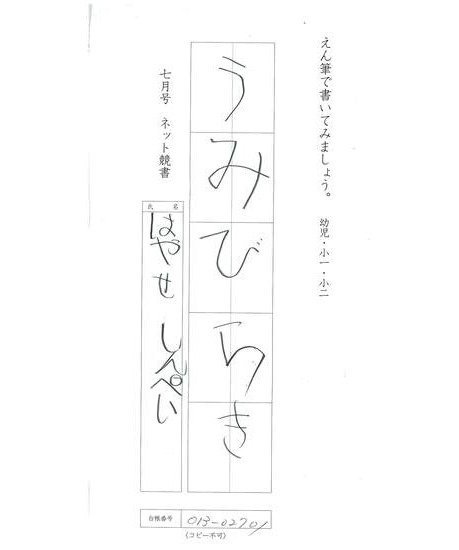 えん筆で書いてみましょう。 幼児・小一・小二
うみびらき
七月号 ネット競書
氏名
はやせ しんぺい
台帳番号 013-02701
(コピー不可)